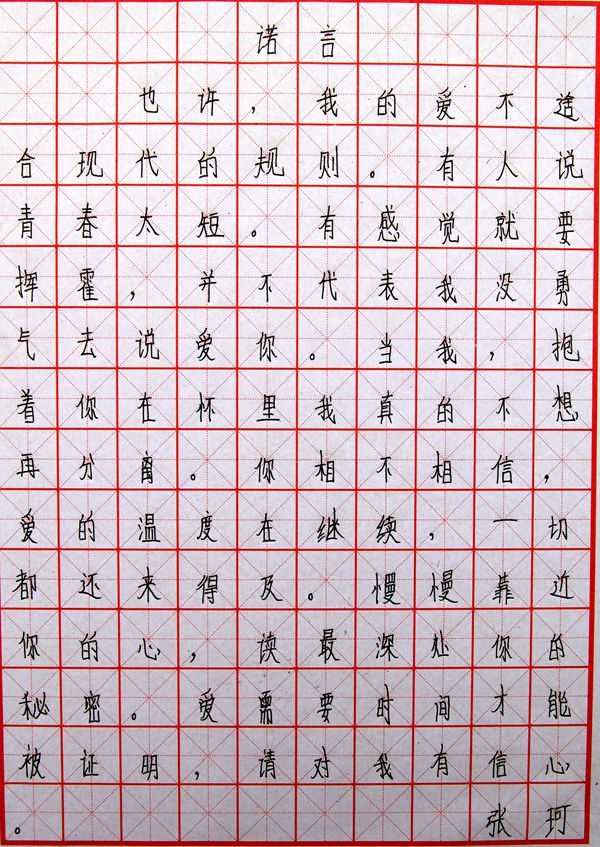 诺言
也许，我的爱不适
合现代的规则。有人说
青春太短。有感觉就要
挥霍，并不代表我没勇
气去说爱你。当我，抱
着你在怀里我真的不想
再分离。你相不相信，
爱的温度在继续，一切
都还来得及。慢慢靠近
你的心，读最深处你的
秘密。爱需要时间才能
被证明，请对我有信心
。张珂